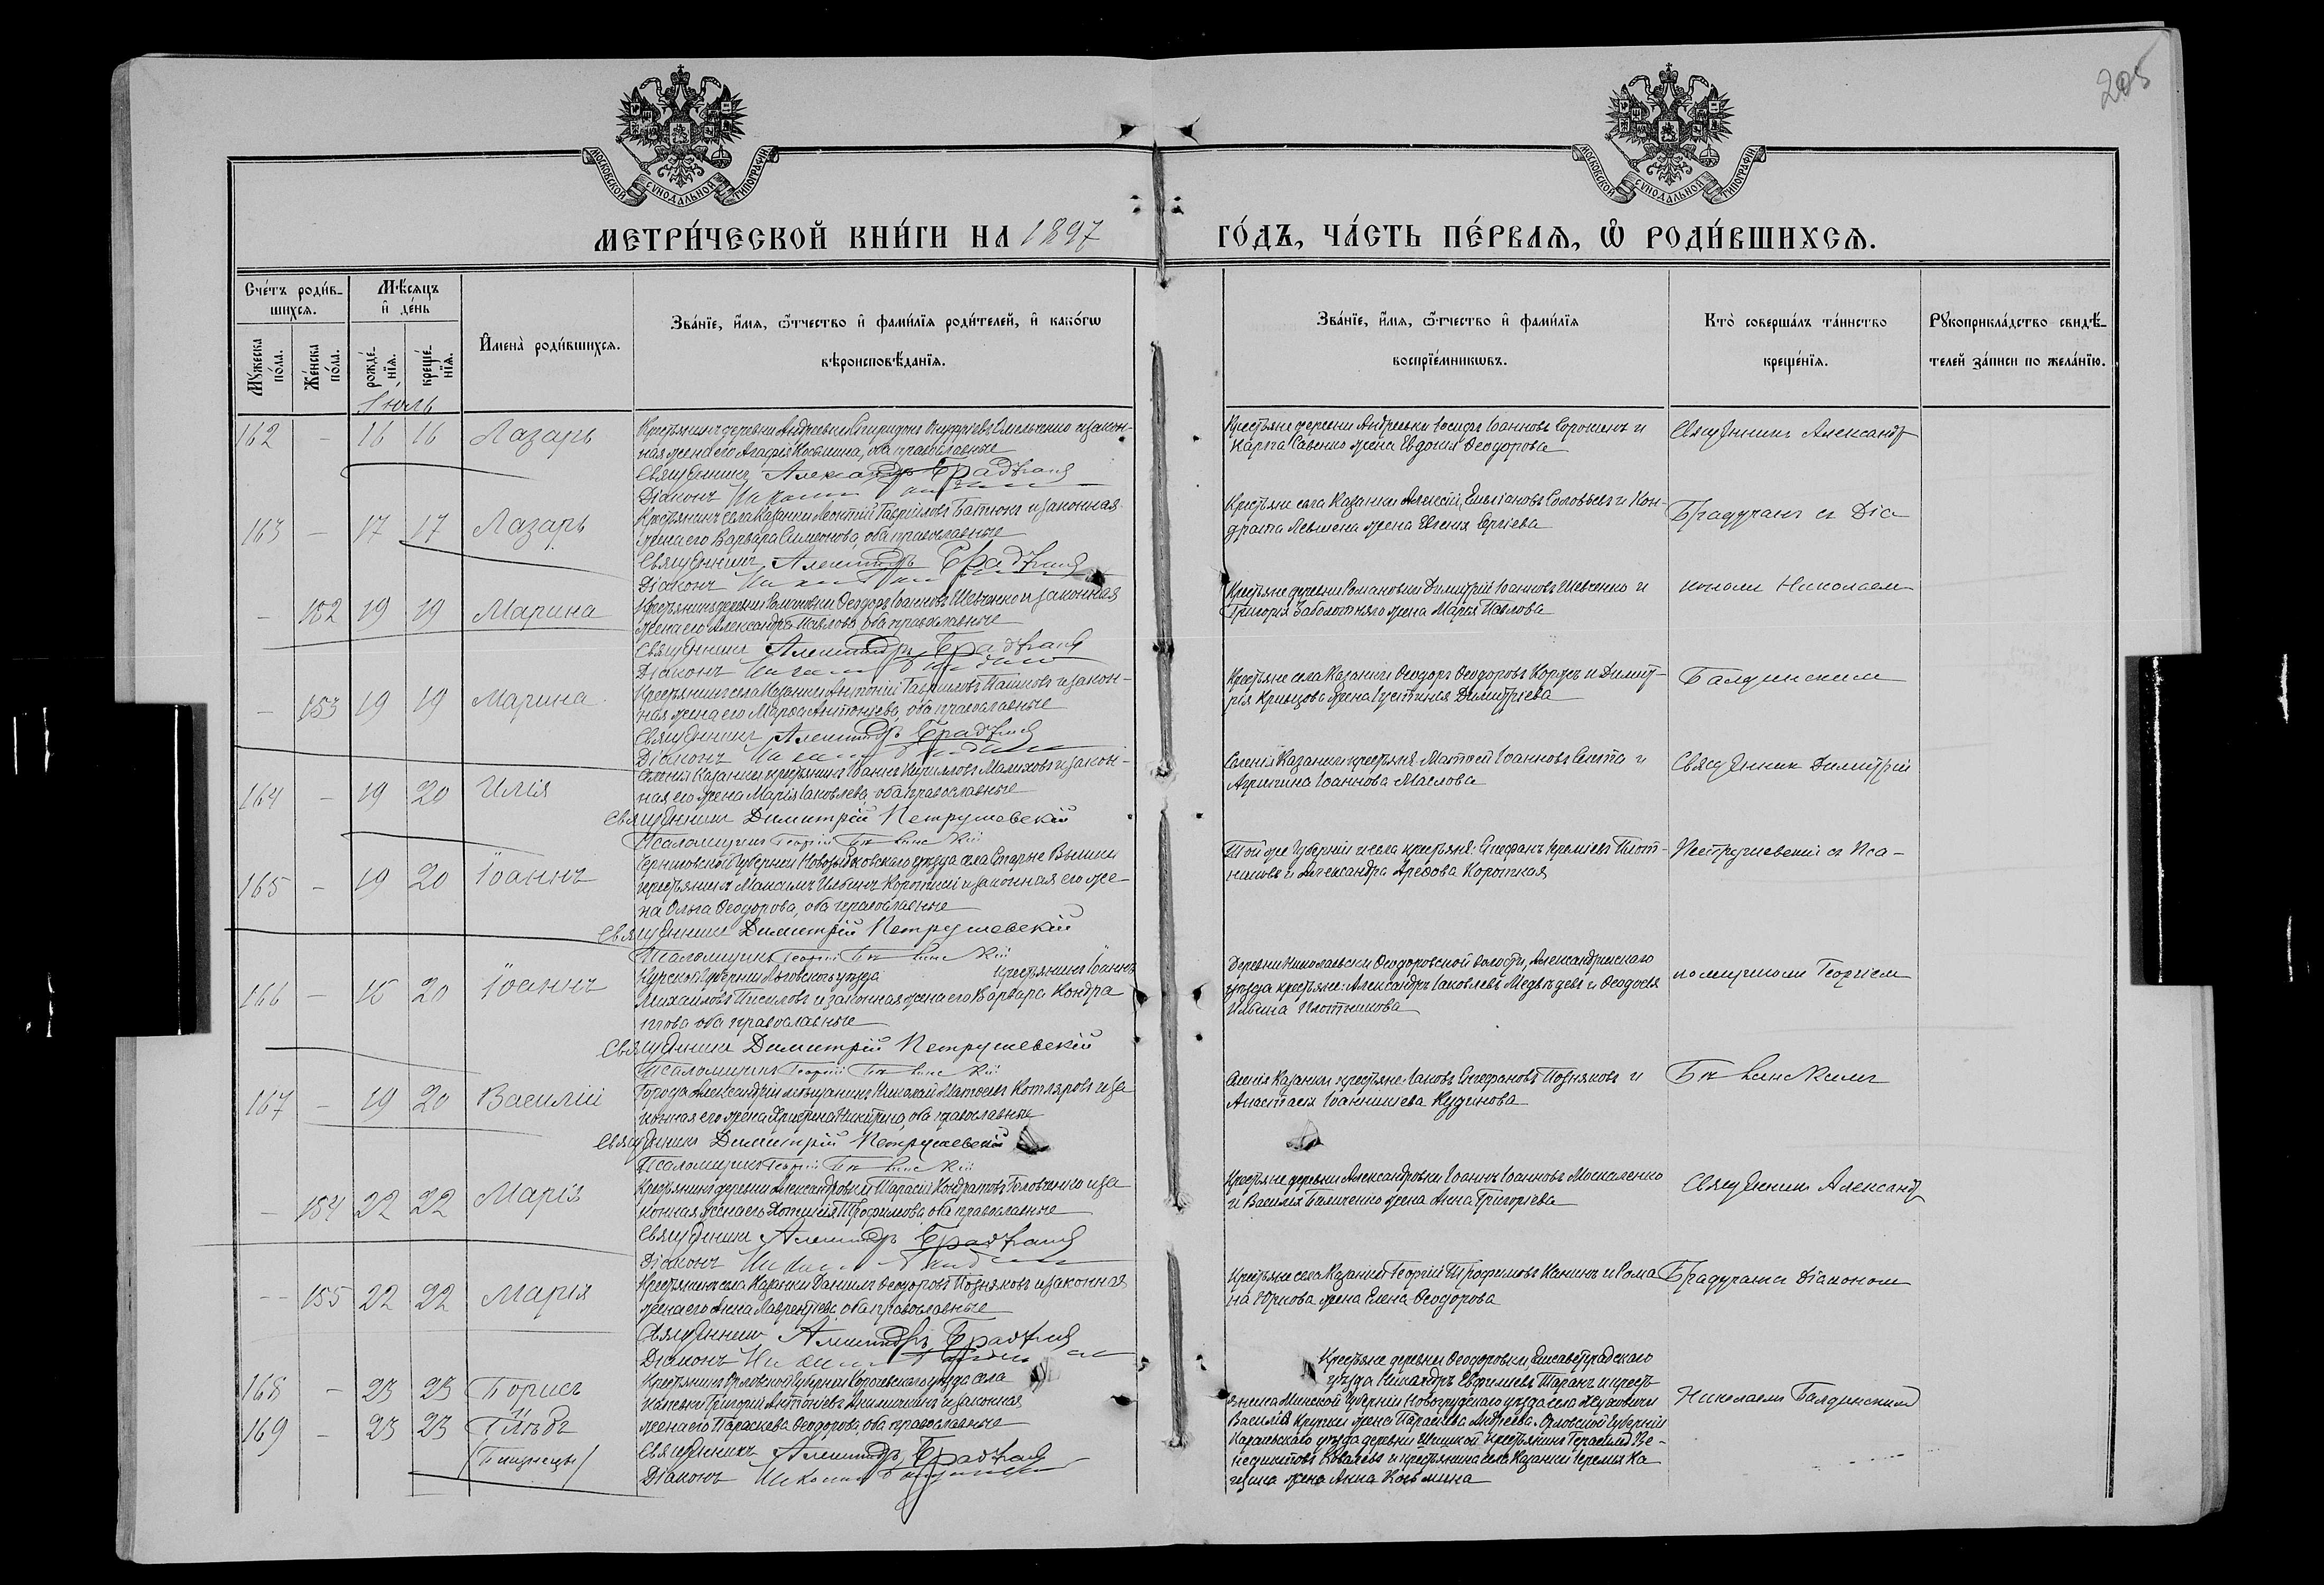 205
МОСКОВСКОЙ СѴНОДАЛЬНОЙ ТИПОГРАФІИ
МОСКОВСКОЙ СѴНОДАЛЬНОЙ ТИПОГРАФІИ
МЕТРИ́ЧЕСКОЙ КНИ́ГИ НА 1897 ГО́ДЪ, ЧА́СТЬ ПЕ́РВАѦ, Ѽ РОДИ́ВШИХСѦ.
Сче́тъ роди́в-
шихсѧ.
Мꙋжеска по́ла.
Же́нска по́ла.
Мѣ́сѧцъ
и҆ де́нь
рожде́-
нїѧ.
креще́-
нїѧ.
И҆мена̀ роди́вшихсѧ.
Зва́нїе, и҆́мѧ, ѻ҆́тчество и҆ фами́лїѧ роди́телей, и҆ како́гѡ
вѣроисповѣ́данїѧ.
Зва́нїе, и҆́мѧ, ѻ҆́тчество и҆ фами́лїѧ
воспрїе́мникѡвъ.
Кто̀ соверша́лъ та́инство
креще́нїѧ.
Рꙋкоприкла́дство свидѣ́-
телей за́писи по жела́нїю.
Іюль
162 - 16 16 Лазарь
Крестьянинъ деревни Андреевки Спиридонъ Омельченко и закон-
ная жена его Агафія Космина, оба православные
Священникъ Александръ Брадучанъ
Діаконъ
Крестьяне деревни Андреевки Іосифъ Іоанновъ Сорокинъ и
Карпа Савенко жена Евдокія Ѳеодорова
Священникъ Александр
163 - 17 17 Лазарь
Крестьянинъ села Казанки Леонтій Гавріиловъ Батюкъ и законная
жена его Варвара Симеонова, оба православные
Священникъ Александръ Брадучанъ
Діаконъ
Крестьяне села Казанки Алексій Емиліановъ Соловьевъ и Кон-
драта Левшена жена Евгенія Сергіева
Брадучанъ съ Діа-
- 152 19 19 Марина
Крестьянинъ деревни Романовки Ѳеодоръ Іоанновъ Шевченко и законная
жена его Александра Павлова, оба православные
Священникъ Александръ Брадучанъ
Діаконъ
Крестьяне деревни Романовки Димитрій Іоанновъ Шевченко и
Григорія Заболотняго жена Марѳа Павлова
кономъ Николаемъ
- 153 19 19 Марина
Крестьянинъ села Казанки Антоній Гавриловъ Пашковъ и закон-
ная жена его Марѳа Антоніева, оба православные
Священникъ Александръ Брадучанъ
Діаконъ
Крестьяне села Казанки Ѳеодоръ Ѳеодоровъ Коржъ и Димит-
рія Кривцова жена Іустинія Димитріева
Балдинскимъ
164 - 19 20 Илія
Селенія Казанки крестьянинъ Іоаннъ Кирилловъ Малиховъ и закон-
ная его жена Марія Іаковлева, оба православные
Священникъ Димитрій Петрушевскій
Псаломщикъ Георгій
Селенія Казанки крестьяне Матѳей Іоанновъ и
Агрипина Іоаннова Маслова
Священникъ Димитрій
165 - 19 20 Іоаннъ
Черниговской Губерніи Новозыбковскаго уѣзда села Старые Вышки
крестьянинъ Максимъ Ильинъ Короткій и законная его же-
на Ольга Ѳеодорова, оба православные
Священникъ Димитрій Петрушевскій
Псаломщикъ Георгій
Той же Губерніи и села крестьяне: Стефанъ Іереміевъ Плот-
никовъ и Александра Ареѳова Короткая
Петрушевскій съ Пса-
166 - 16 20 Іоаннъ
Курской Губерніи Льговскаго уѣзда крестьянинъ Іоаннъ
Михаиловъ и законная жена его Варвара Кондра-
това оба православные
Священникъ Димитрій Петрушевскій
Псаломщикъ Георгій
Деревни Николаевки Ѳеодоровской волости, Александрійскаго
уѣзда крестьяне: Александръ Іаковлевъ Медвѣдевъ и Ѳеодосія
Ильина Плотникова
ломщикомъ Георгіемъ
167 - 19 20 Василій
Города Александріи мѣщанинъ Николай Матѳеевъ Котляровъ и за-
конная его жена Христина Никитина, оба православные
Священникъ Димитрій Петрушевскій
Псаломщикъ Георгій
Селенія Казанки крестьяне: Іаковъ Стефановъ Поздняковъ и
Анастасія Іоанникіева Кудинова
- 154 22 22 Марія
Крестьянинъ деревни Александровки Тарасій Кондратовъ Головченко и за-
конная жена его Фотинія Трофимова, оба православные
Священникъ Александръ Брадучанъ
Діаконъ
Крестьяне деревни Александровки Іоаннъ Іоанновъ Москаленко
и Василія Биличенко жена Анна Григоріева
Священникъ Александр
- 155 22 22 Марія
Крестьянинъ села Казанки Даніилъ Ѳеодоровъ Поздняковъ и законная
жена его Анна Лаврентіева, оба православные
Священникъ Александръ Брадучанъ
Діаконъ
Крестьяне села Казанки Георгій Трофимовъ Канинъ и Рома-
на Юркова жена Елена Ѳеодорова
Брадучанъ съ Діакономъ
168 - 23 23 Борисъ
169 - 23 23 Глѣбъ
(Близнецы)
Крестьянинъ Орловской Губерніи Карачевскаго уѣзда села
Григорій Антоніевъ и законная
жена его Параскева Ѳеодорова, оба православные
Священникъ Александръ Брадучанъ
Діаконъ Николай Балдинскій
Крестьяне деревни Ѳеодоровки, Елисаветградскаго
уѣзда Никандръ Евфиміевъ Таранъ и кресть-
янина Минской Губерніи Новогрудскаго уѣзда села Жуховичи
Василія жена Параскева Андреева. Орловской Губерніи
Карачевскаго уѣзда деревни крестьянинъ Герасимъ Ве-
недиктовъ Ковалевъ и крестьянина села Казанки Іереміи Ка-
жена Анна Космина
Николаемъ Балдинскимъ